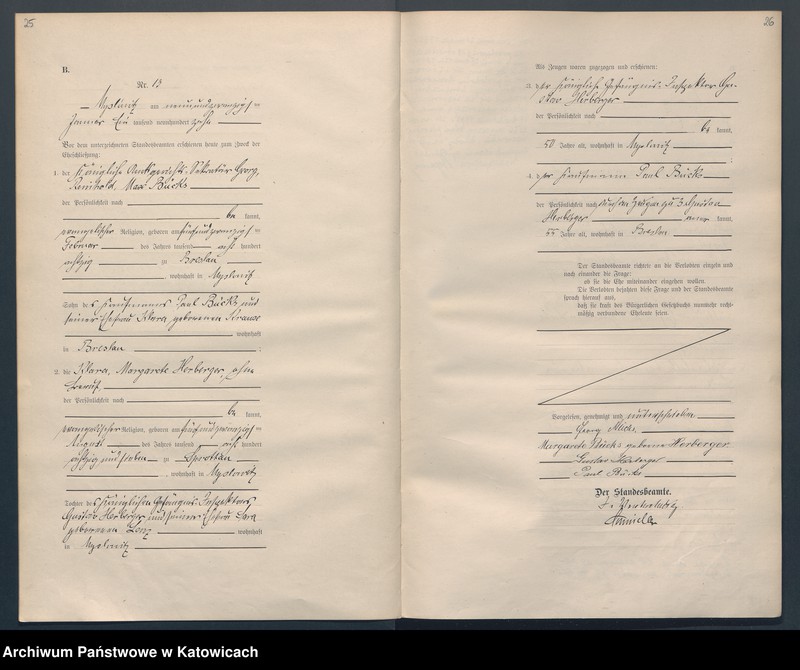 25
B.
Nr. 13
Myslowitz am neunundzwanzigsten
Januar Ein tausend neunhundert zehn
Vor dem unterzeichneten Standesbeamten erschienen heute zum Zweck der
Eheschließung:
1. der Königliche Amtsgerichts-Sekretär Georg,
Reinhold, Max Bücks
der Persönlichkeit nach
be kannt,
evangelischer Religion, geboren am fünfundzwanzigsten
Februar des Jahres tausend acht hundert
achtzig zu Breslau
, wohnhaft in Myslowitz
Sohn des Kaufmanns Paul Bücks und
seiner Ehefrau Klara geborenen Krause
wohnhaft
in Breslau
2. die Klara, Margarete Herberger, ohne
Beruf,
der Persönlichkeit nach
be kannt,
evangelischer Religion, geboren am fünfundzwanzigsten
August des Jahres tausend acht hundert
achtzig und sieben zu Sprottau
, wohnhaft in Myslowitz
Tochter des Königlichen Gefängnis-Inspektors
Gustav Herberger und seiner Ehefrau
geborenen Lenz wohnhaft
in Myslowitz
26
Als Zeugen waren zugezogen und erschienen:
3. der Königliche Gefängnis-Inspektor Gu-
stav Herberger
der Persönlichkeit nach
be kannt,
50 Jahre alt, wohnhaft in Myslowitz
4. der Kaufmann Paul Bücks
der Persönlichkeit nach durch den Zeugen zu 3 Gustav
Herberger aner kannt,
55 Jahre alt, wohnhaft in Breslau
Der Standesbeamte richtete an die Verlobten einzeln und
nach einander die Frage:
ob sie die Ehe miteinander eingehen wollen.
Die Verlobten bejahten diese Frage und der Standesbeamte
sprach hierauf aus,
daß sie kraft des Bürgerlichen Gesetzbuchs nunmehr recht-
mäßig verbundene Eheleute seien.
Vorgelesen, genehmigt und unterschrieben.
Georg Bücks
Margarete Bücks geborene Herberger
Gustav Herberger
Paul Bücks
Der Standesbeamte.
Archiwum Państwowe w Katowicach